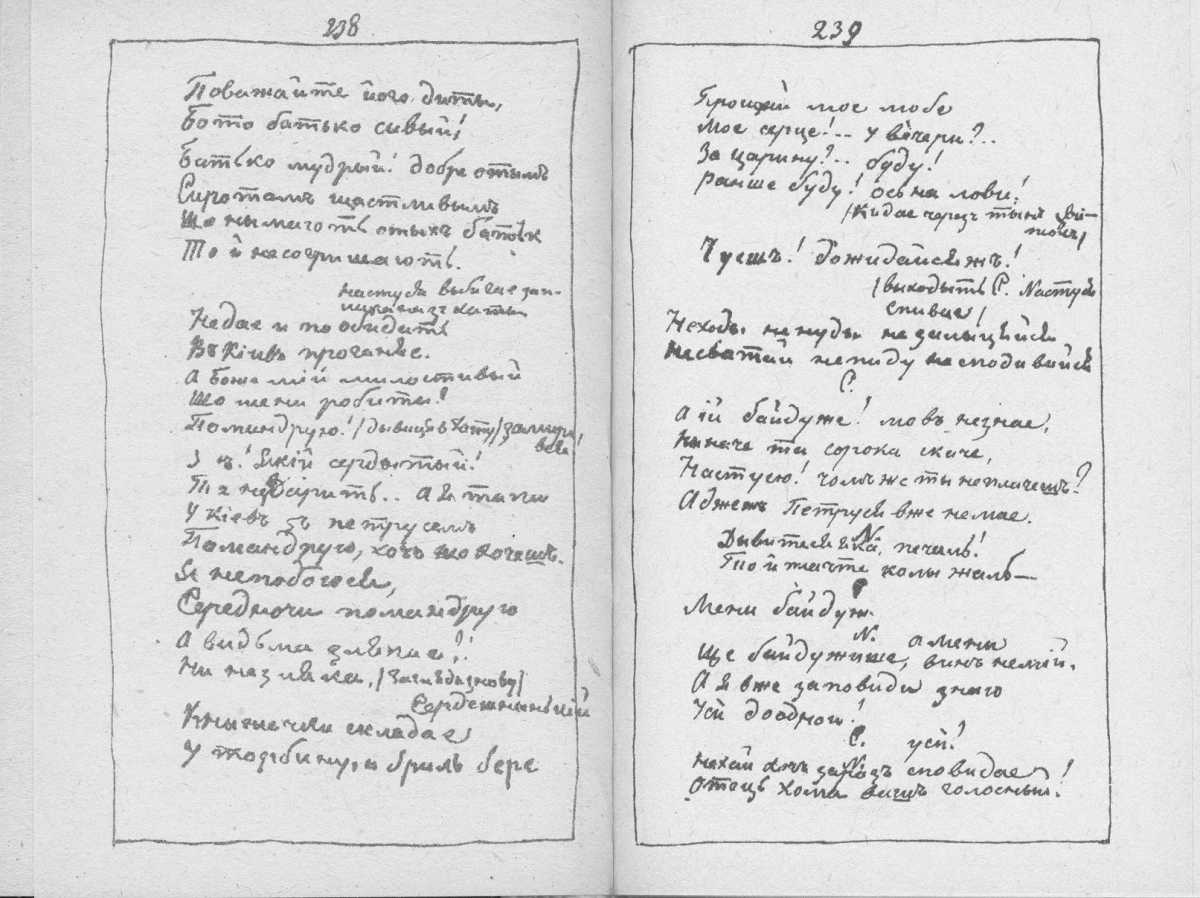 238
Поважайте його дити,
Бото батько сивый!
Батько мудрый! добре отымъ
Сиротамъ щастливымъ
Що нымають отыхъ батькі
То й несогришають.
Настуся выбигае зап-
изъ хаты
Недае и пообидать
Въ Кіивъ прогание.
А Боже мій милостивый
Що мени робити?
Помандрую! /дывиця в хату/ замира
вона!
Якій сердытый!
Та невдарить.. а я таки
У Кіевъ зъ петрусемъ
Помандрую, хочъ що хочешъ.
Я непобоюся,
Середночи помандрую
А видьма злякае?!
Ни незляка, /
Сердешнинькій
Кныжечки складае
У торбину, и бриль бере
239
Прощай мое любе
Мое серце!.. у вечери?..
За царину?.. буду!
Ранше буду! ось на лови!
/Кидае черезъ тынъ кви-
токъ/
Чуешъ! дожидайсяжъ!
/выходыть С. Nастуся
спивае/
Неходы ненуды незалыцяйся
Несватай непиду несподивайся
С.
А ій байдуже! мовъ незнае,
Ныначе та сорока скаче,
Настусю! чомъ же ты неплачешъ?
Аджежъ Петруся вже немае.
N.
Дывитеся яка, печаль!
То й плачте колы жаль—
С.
Мени байдуж.
N. а мени
Ще байдужише, винъ немій.
А я вже заповиди знаю
Усй доодной!
С. усй!
N.
Нехай лишъ заразъ сповидае!
Отець хома вишъ голосным!